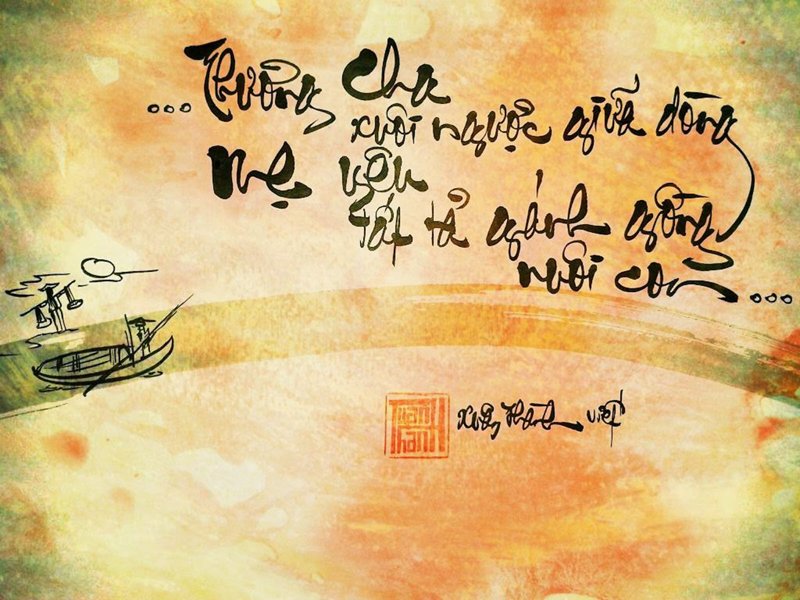 ...Thương Cha
xuôi ngược giữa dòng
Mẹ yêu
tất tả gánh gồng
nuôi con...
viết